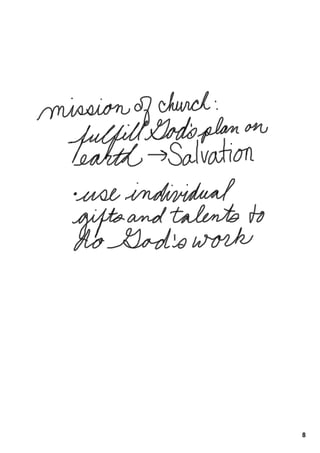 mission of church:
fulfill God's plan on
earth →Salvation
•use individual
gifts and talents to
do God's work
8